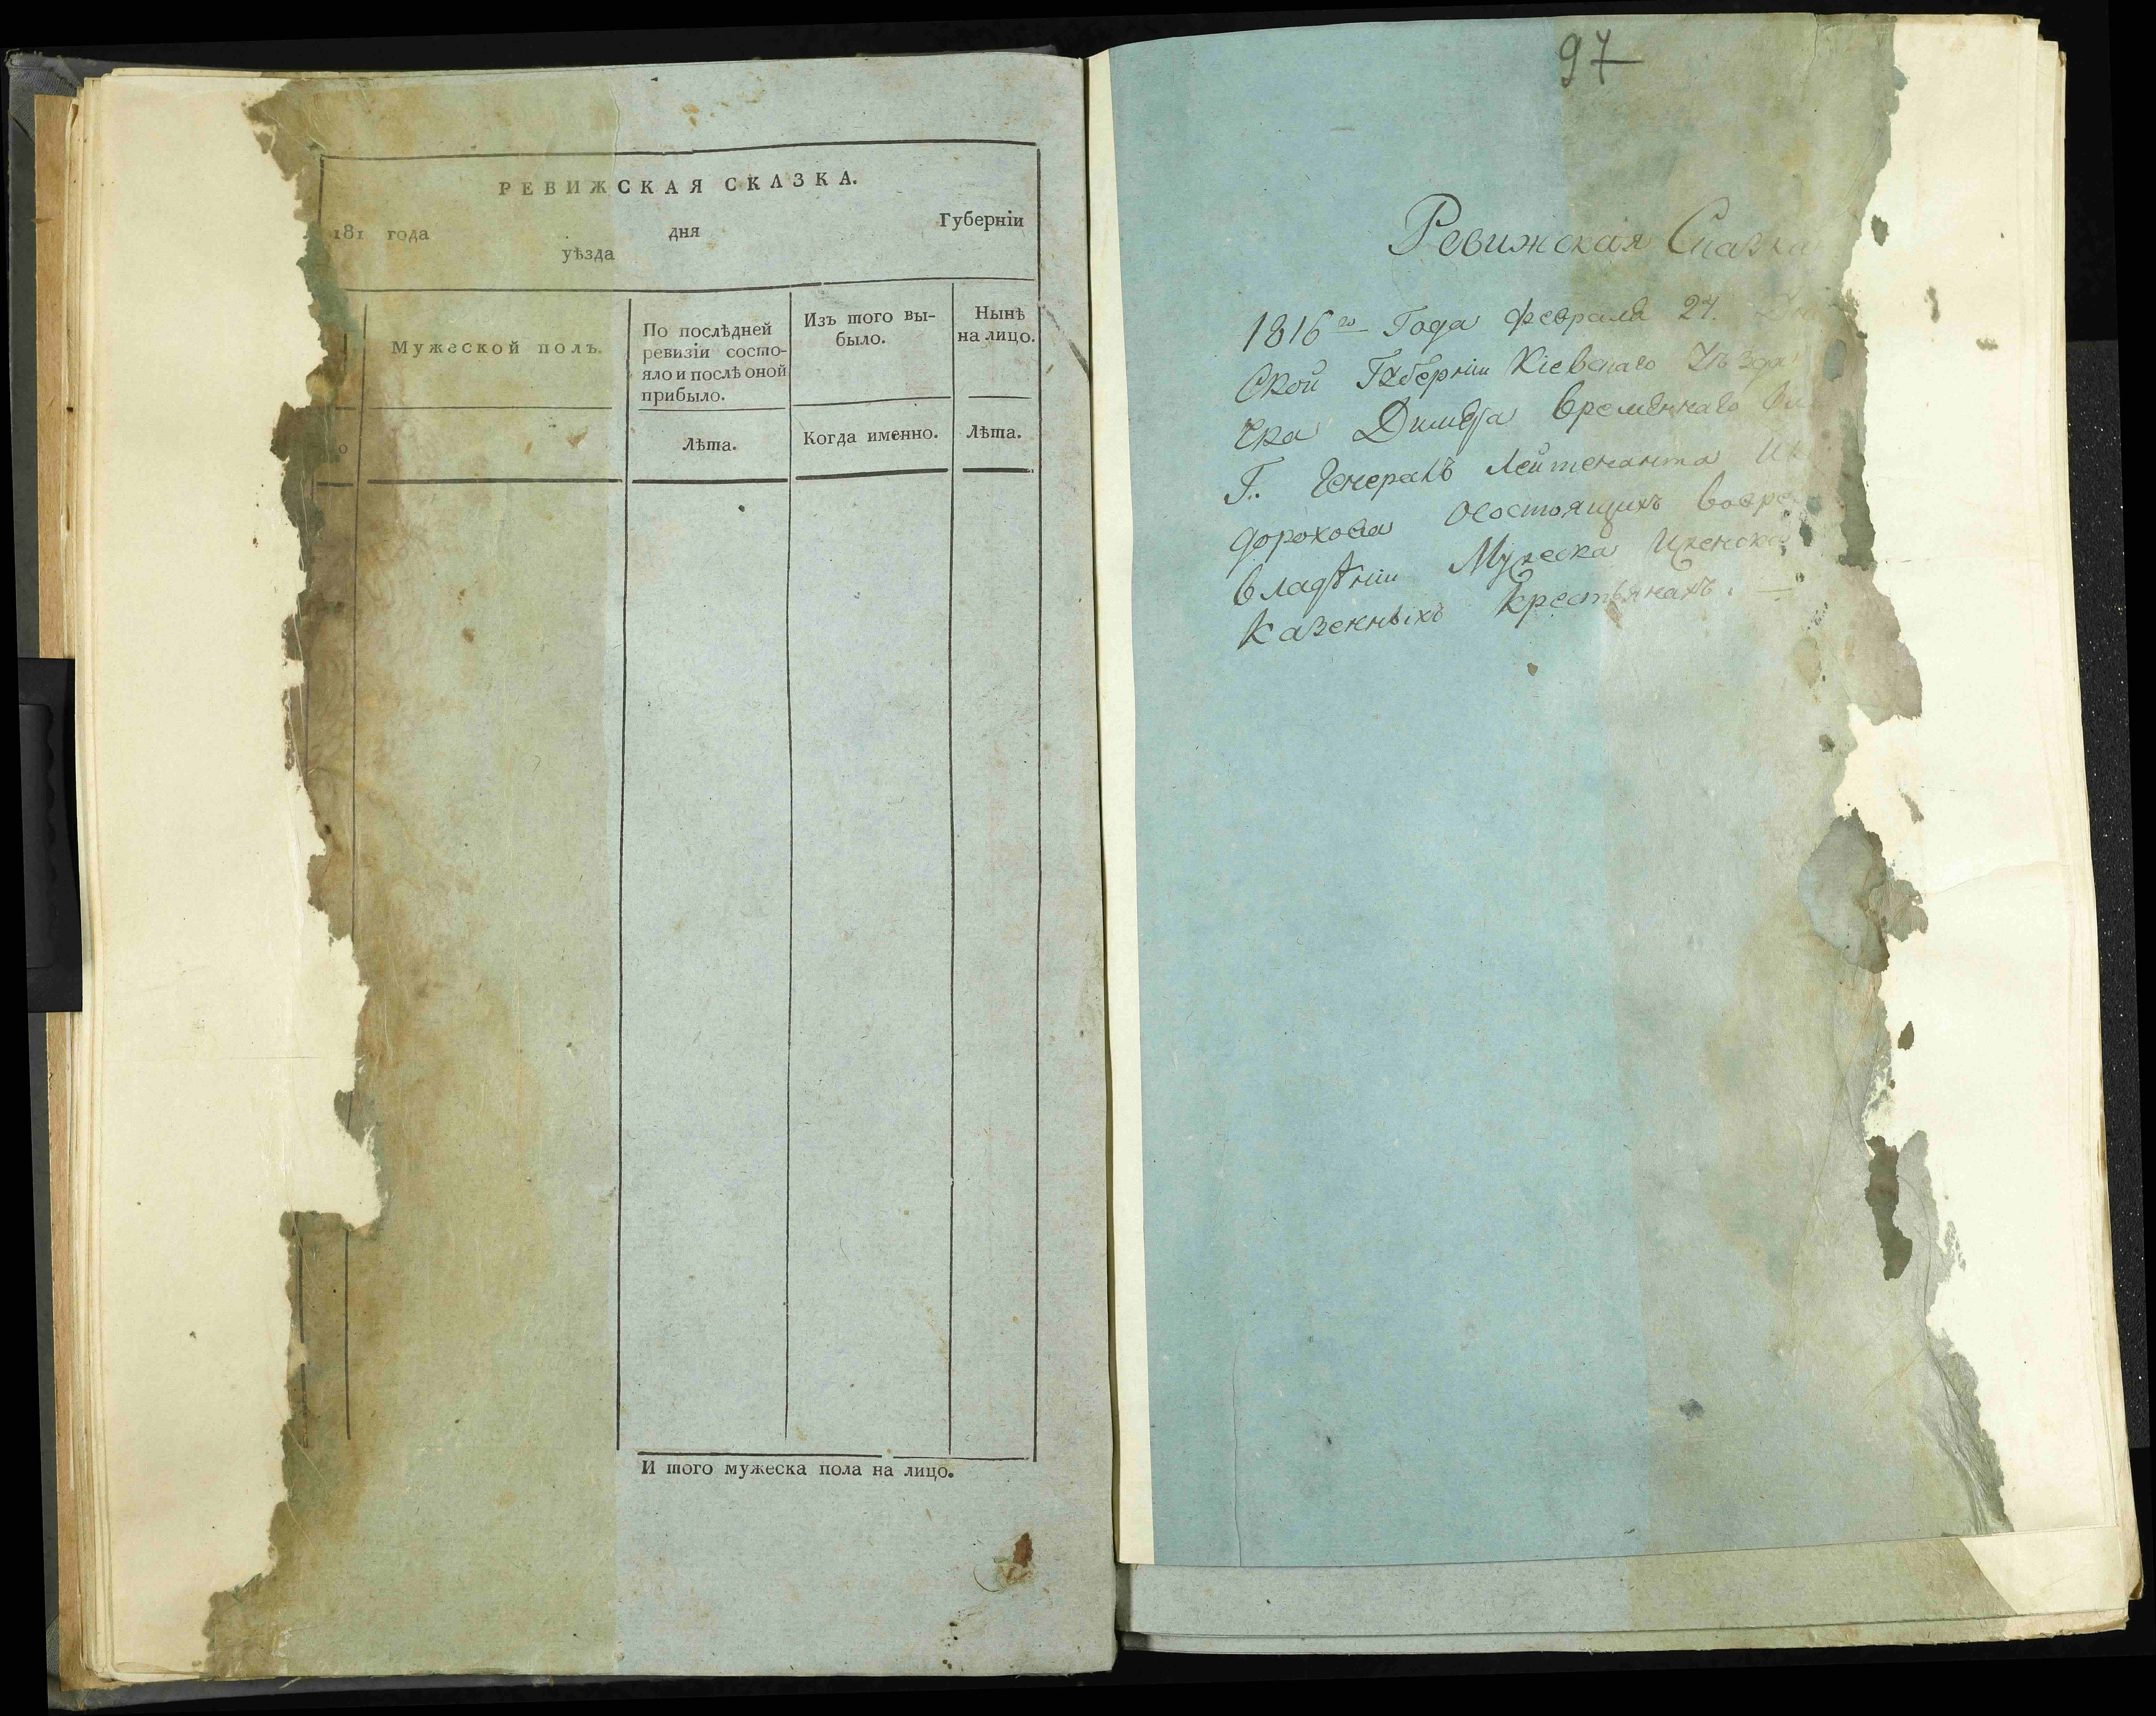 РЕВИЖСКАЯ СКАЗКА.
181 года дня Губернїи
уѣзда
Мужеской полъ.
По послѣдней
ревизїи состо-
яло и послѣ оной
прибыло.
Изъ того вы-
было.
Нынѣ
на лицо.
Лѣта.
Когда именно.
Лѣта.
И того мужеска пола на лицо.
97
Ревижская Сказка
1816го Года февраля 27.
Ской Губернїи Кїевскаго Уѣзда
Дымера временнаго
Г. Генералъ Лейтенанта
дорохова Осостоящихъ
владѣнїи Мужеска Иженска
Казенныхъ Крестьянахъ.